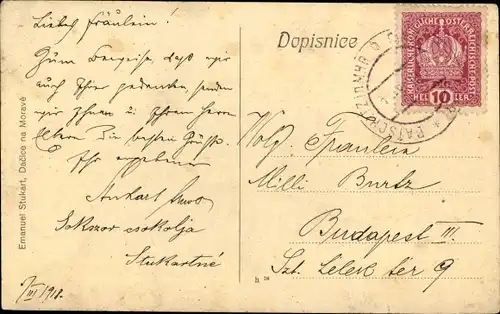 Liebes Fräulein!
Zum Beweise, daß wir
auch Ihrer gedenken, senden
wir Ihnen u. Ihren Herrn
Eltern die besten Grüße.
Ihr ergebener
Sokszor csókolja
Stukartné
/III 1918.
Emanuel Stukart, Dačice na Moravě
Dopisnice
KAISERLICHE KÖNIGLICHE ÖSTERREICHISCHE POST
HELLER
10
Wolg. Fräulein
Milli Burtz
Budapest III.
Szt. Lelek tér 9